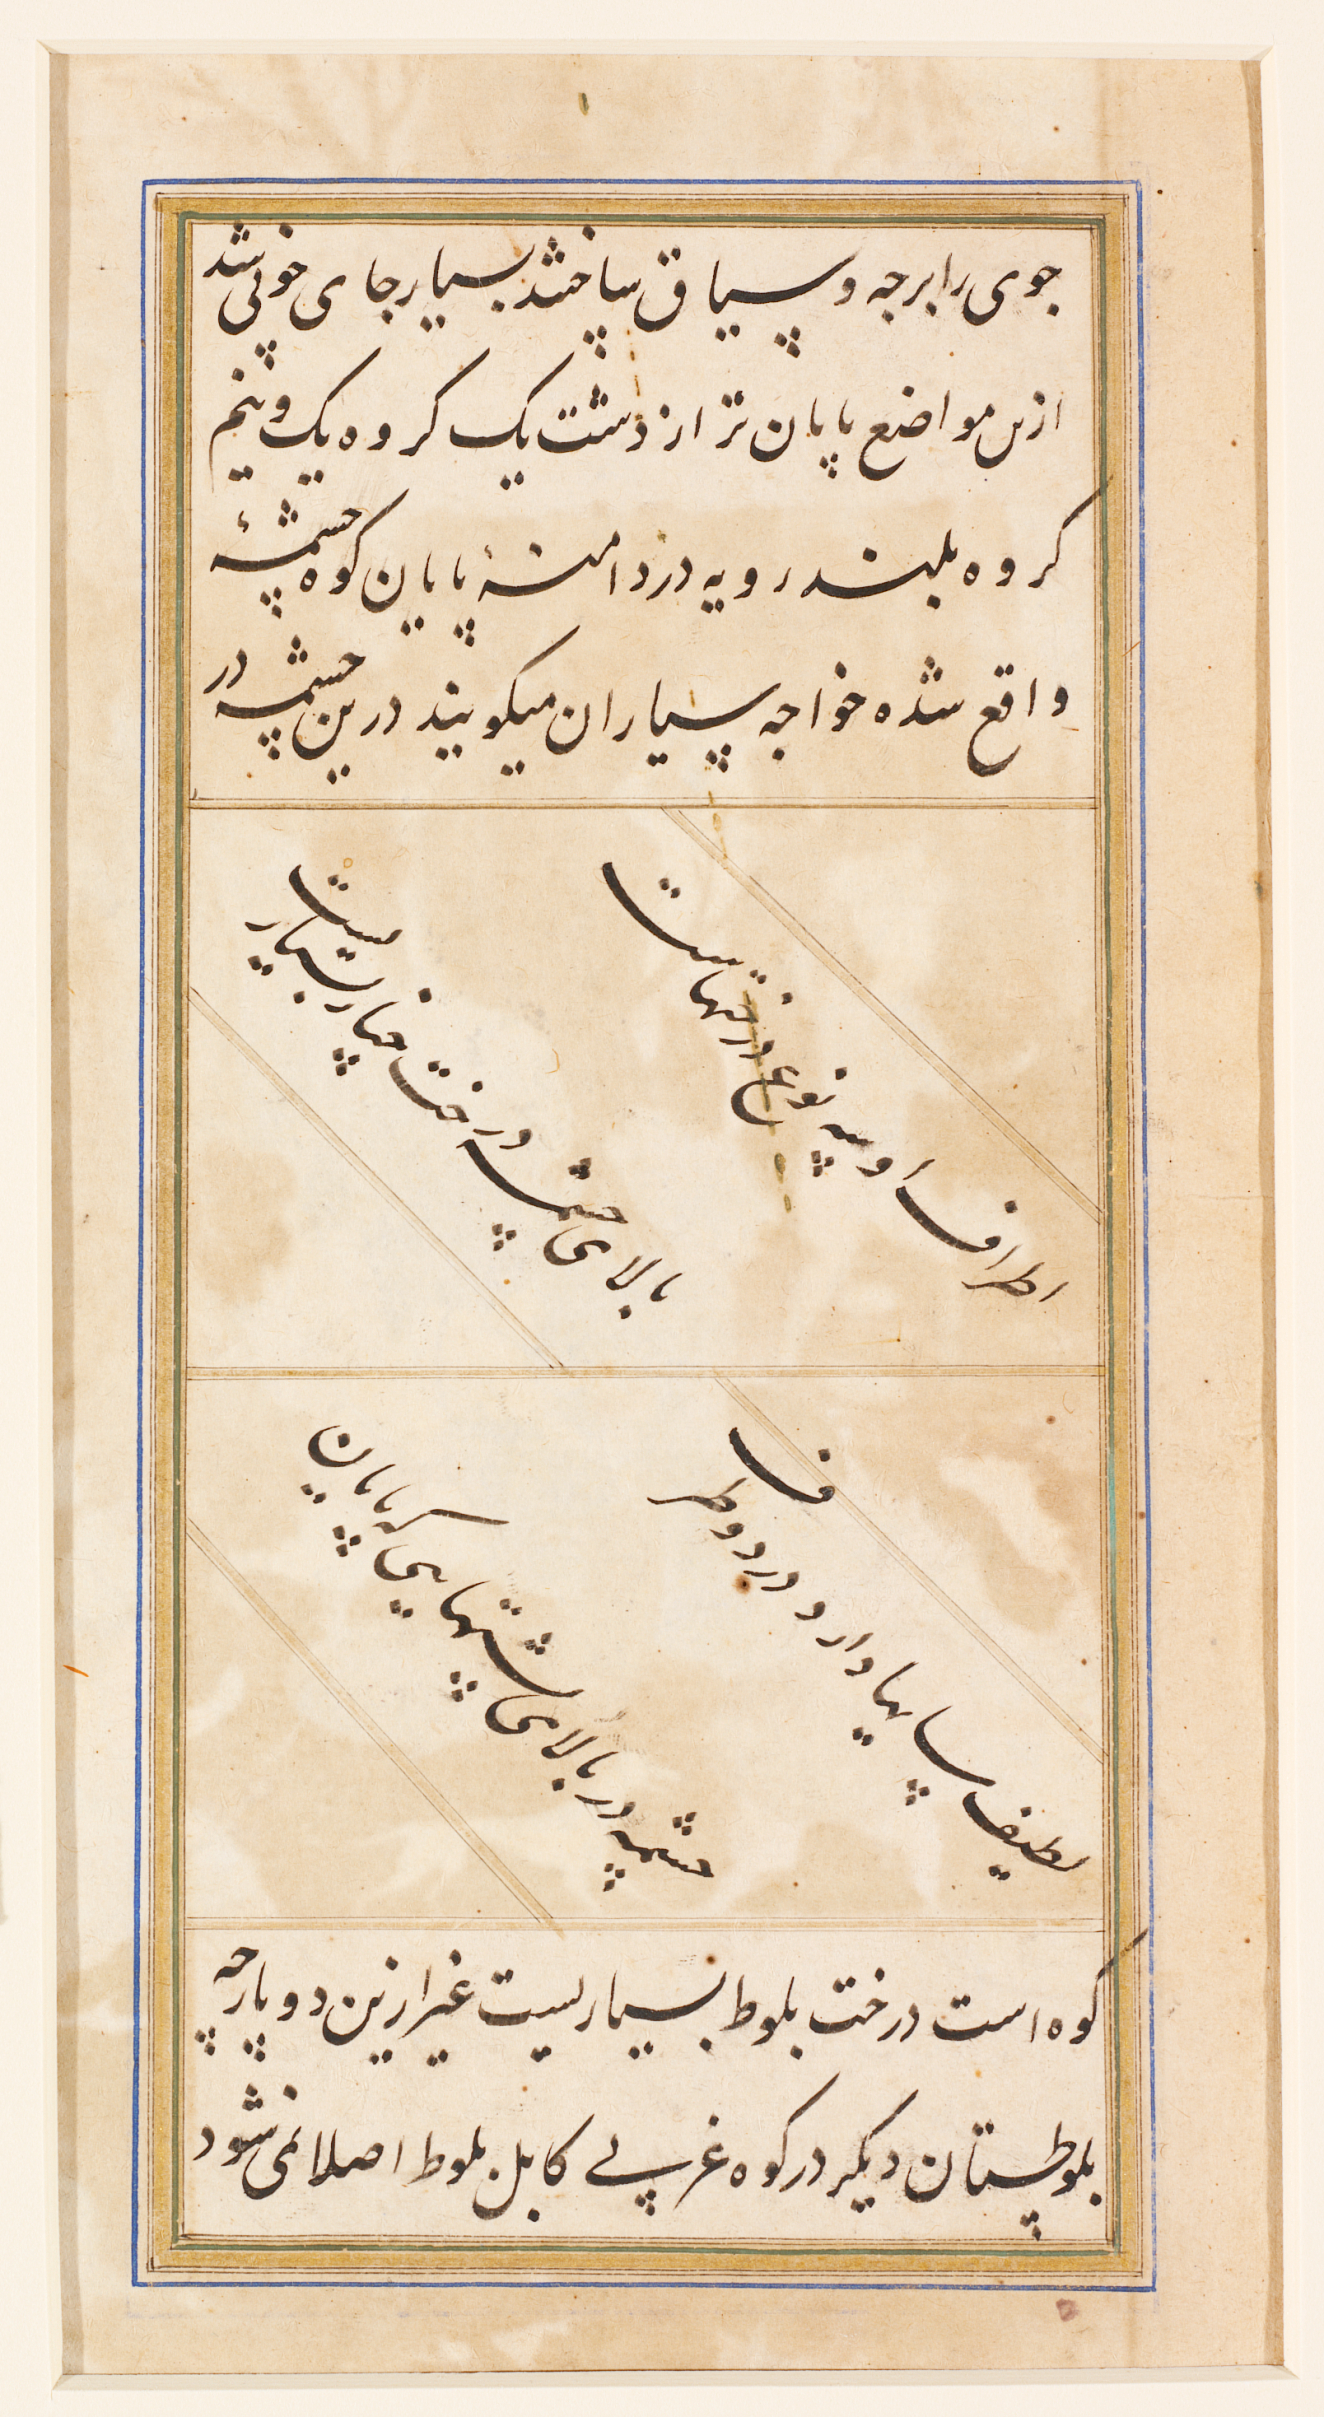 جوی را برجه و سیاق ساختند بسیار جای خوبی شد
ازین مواضع پایان تر از دشت یک کروه یک و نیم
کروه بلند رویه در دامنهٔ پایان کوه چشمهٔ
واقع شده خواجه سیاران میگویند درین چشمه در
اطراف او سه نوع درختهاست
بالای چشمه درخت چنار بسیار است
لطیف سایها دارد و در دو طرف
چشمه در بالای پشتهایی که پایان
کوه است درخت بلوط بسیاریست غیر ازین دو پارچه
بلوطستان دیگر در کوه غربی کابل بلوط اصلا نمی شود